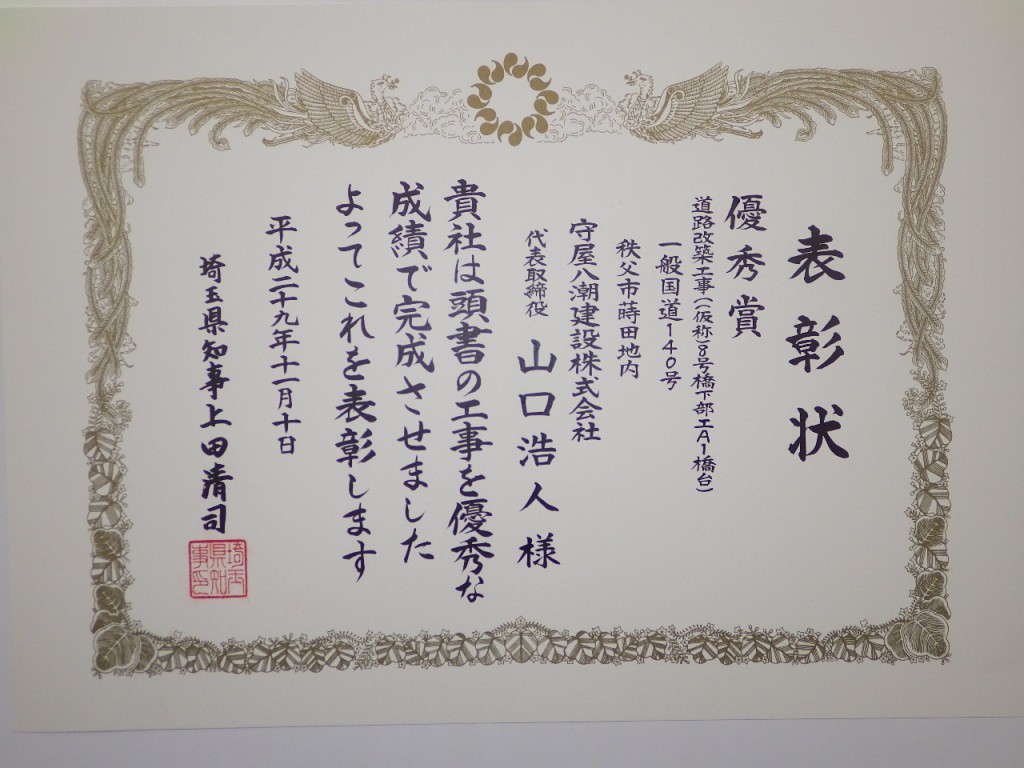 表彰状
優秀賞
道路改築工事(仮称)8号橋下部工A1橋台)
一般国道140号
秩父市蒔田地内
守屋八潮建設株式会社
代表取締役 山口浩人様
貴社は頭書の工事を優秀な
成績で完成させました
よってこれを表彰します
平成二十九年十一月十日
埼玉県知事上田清司
埼玉
県知
事印